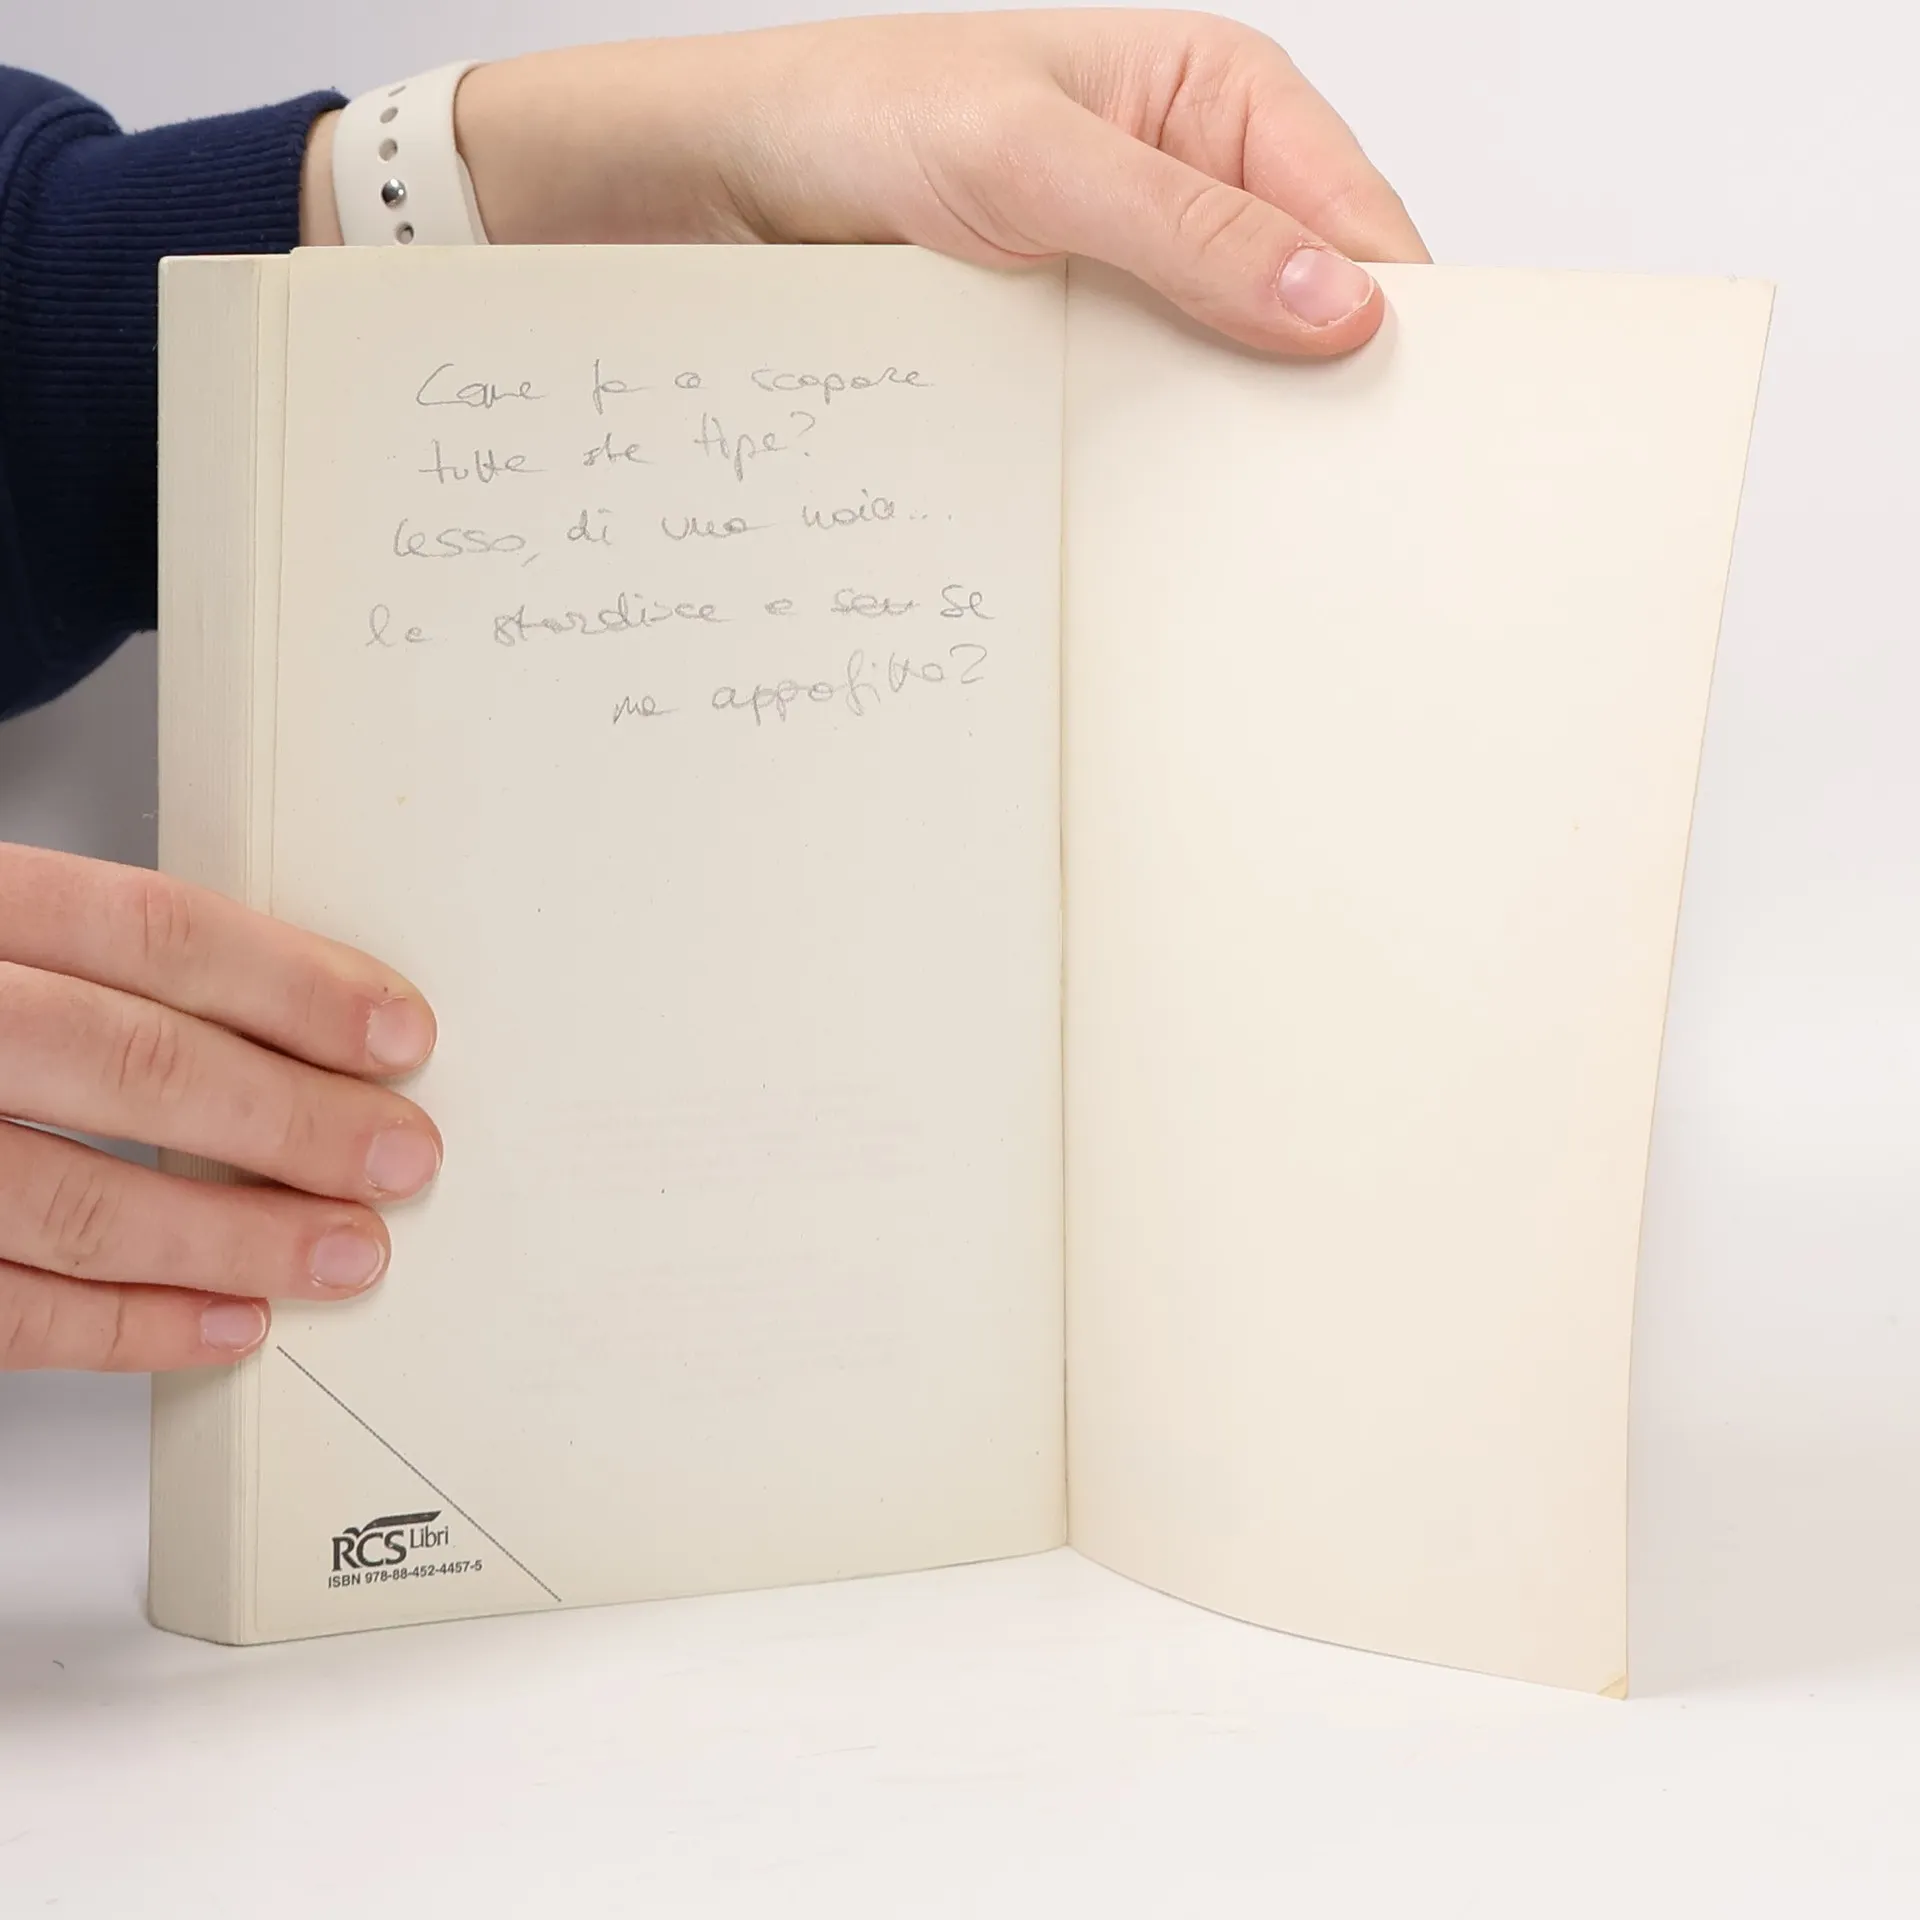 Come fa a scopare
tutte ste tipe?
Cesso, di una noia...
le stordisce e poi se
ne appofitta?
RCS Libri
ISBN 978-88-452-4457-5